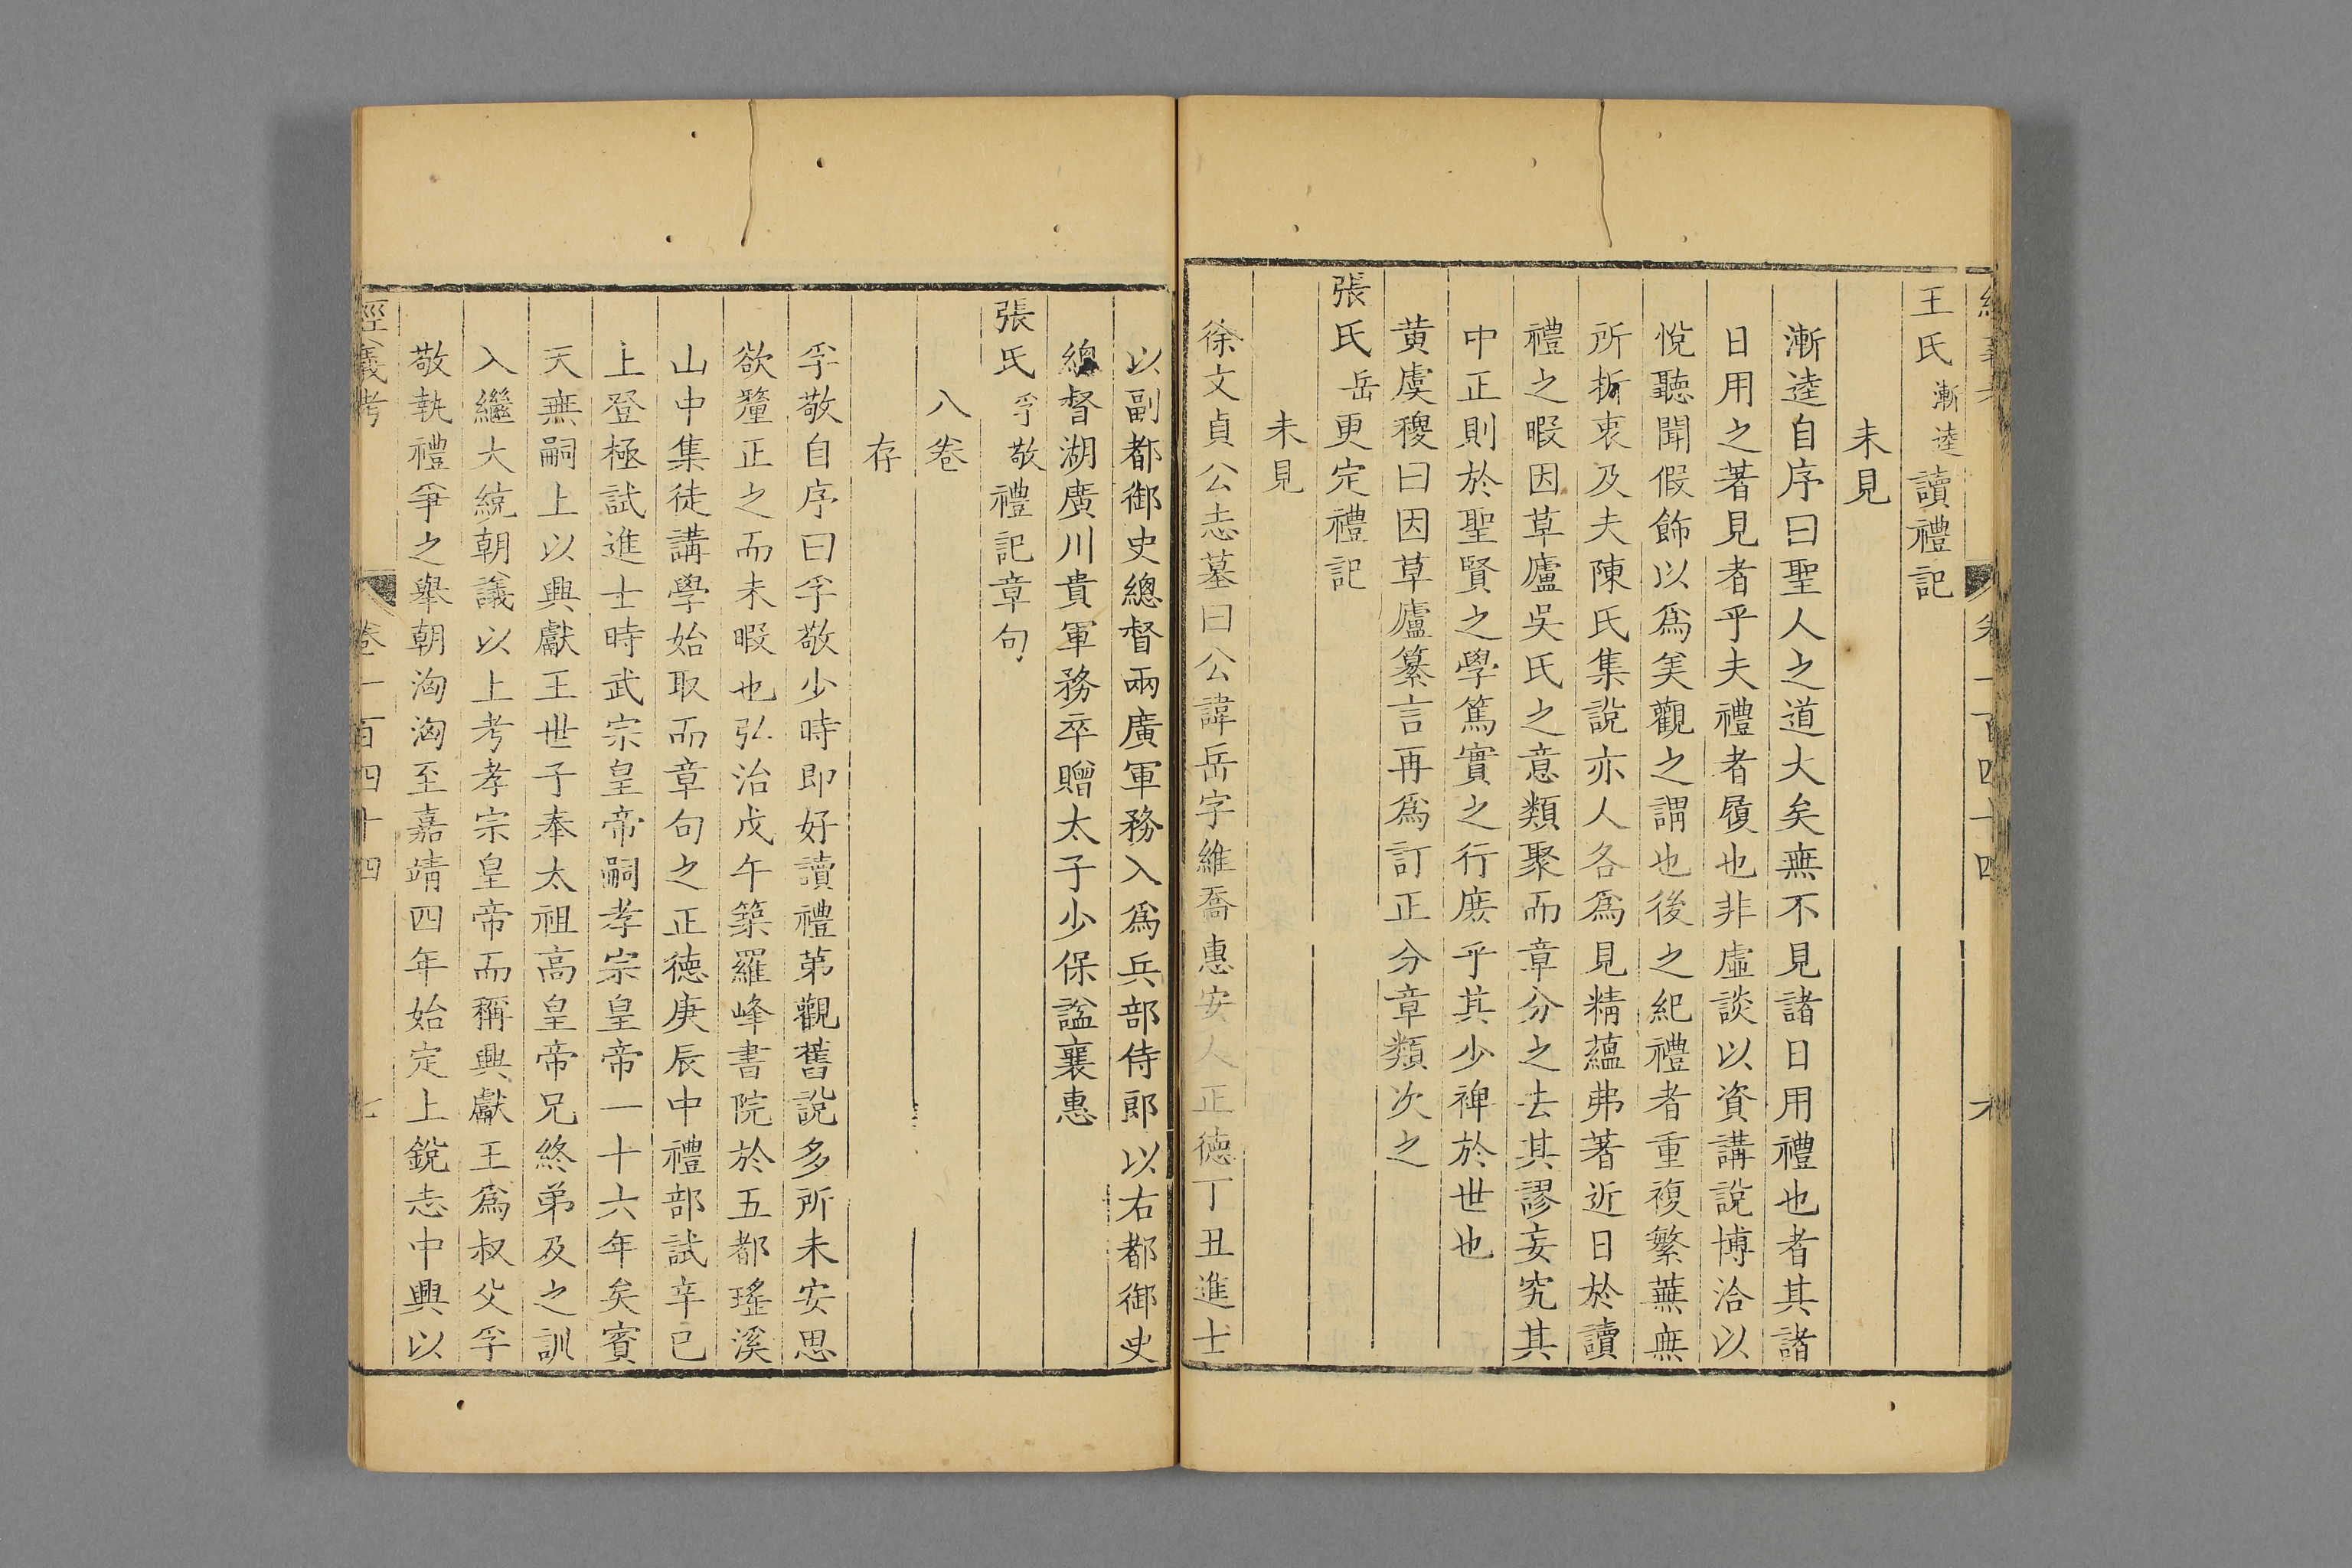 經義考 卷一百四十四 六
王氏漸逵讀禮記
未見
漸逵自序曰聖人之道大矣無不見諸日用禮也者其諸
日用之著見者乎夫禮者履也非虛談以資講說博洽以
悅聽聞假飾以爲美觀之謂也後之紀禮者重複繁蕪無
所折衷及夫陳氏集說亦人各爲見精蘊弗著近日於讀
禮之暇因草廬吳氏之意類聚而章分之去其謬妄究其
中正則於聖賢之學篤實之行庶乎其少裨於世也
黄虞稷曰因草廬纂言再爲訂正分章類次之
張氏岳更定禮記
未見
徐文貞公志墓曰公諱岳字維喬惠安人正德丁丑進士
以副都御史總督兩廣軍務入爲兵部侍郎以右都御史
總督湖廣川貴軍務卒贈太子少保諡襄惠
張氏孚敬禮記章句
八卷
存
孚敬自序曰孚敬少時即好讀禮第觀舊說多所未安思
欲釐正之而未暇也弘治戊午築羅峰書院於五都瑤溪
山中集徒講學始取而章句之正德庚辰中禮部試辛巳
上登極試進士時武宗皇帝嗣孝宗皇帝一十六年矣賓
天無嗣上以興獻王世子奉太祖高皇帝兄終弟及之訓
入繼大統朝議以上考孝宗皇帝而稱興獻王爲叔父孚
敬執禮爭之舉朝洶洶至嘉靖四年始定上銳志中興以
經義考 卷一百四十四 七